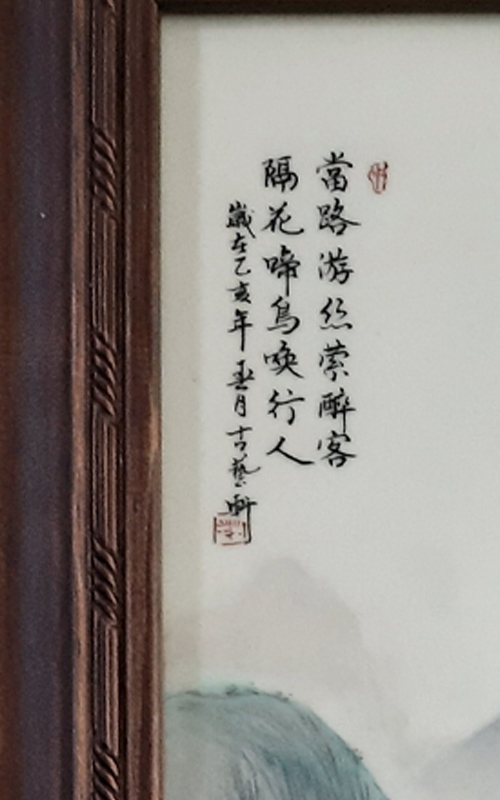 當路游絲縈醉客
隔花啼鳥喚行人
歲在乙亥年 月 古藝軒